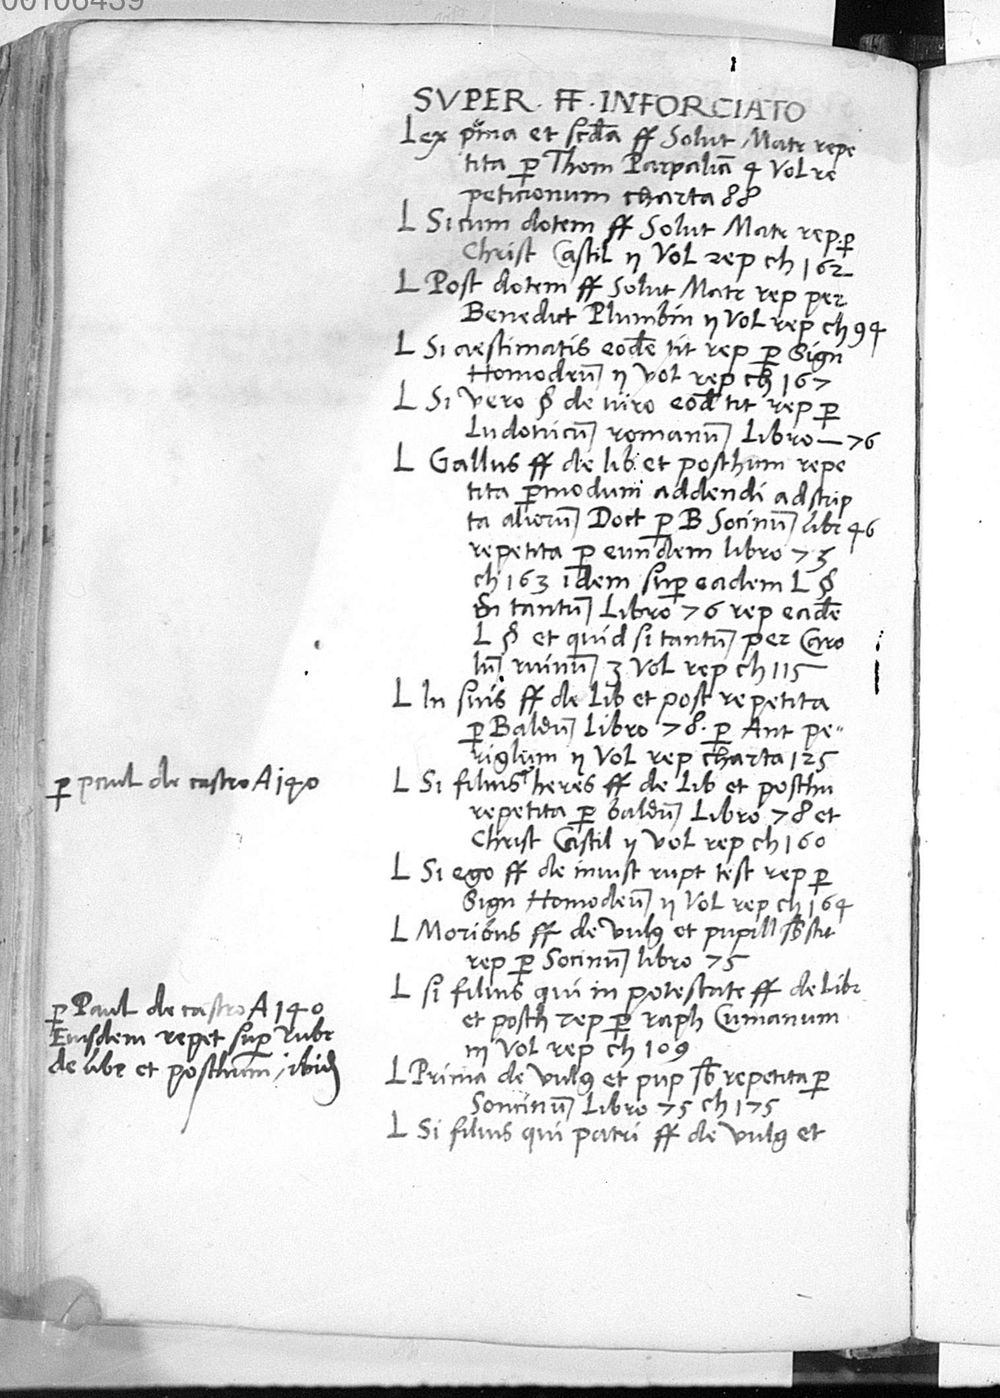 00106439
SVPER · FF · INFORCIATO
Lex p̃ma et scđa ff Solut Matr repe
tita ꝑ Thom Parpaliã 4 Vol re
peticionum charta 88
L Si cum dotem ff Solut Matr rep ꝑ
Christ Castil ij Vol rep ch 162
L Post dotem ff Solut Matr rep per
Benedict Plumbin ij Vol rep ch 94
L Si aestimatis eodẽ tit rep ꝑ Sign
Homodeũ ij vol rep ch 167
L Si vero § de viro eod tit rep ꝑ
Ludovicũ romanũ Libro — 76
L Gallus ff de lib et posthum repe
tita ꝑ modum addendi ad scrip
ta aliorũ Doct ꝑ B Socinũ libr 46
repetita ꝑ eundem libro 75
ch 163 idem suꝑ eadem L §
tantũ Libro 76 rep eadẽ
L § et quid si tantũ per Caro
lũ ruinũ 3 Vol rep ch 115
L In suis ff de Lib et post repetita
ꝑ Baldũ Libro 78 · ꝑ Ant pe=
riglum ij Vol rep charta 125
L Si filius heres ff de Lib et posthu
repetita ꝑ baldũ Libro 78 et
Christ Castil ij vol rep ch 160
L Si ego ff de iniust rupt test rep ꝑ
Sign Homodeũ ij Vol rep ch 164
L Moribus ff de vulg et pupill sb̃stit
rep ꝑ Socinũ libro 75
L si filius qui in potestate ff de Libr
et posth rep ꝑ raph Cumanum
in Vol rep ch 109
L Prima de vulg et pup sb̃ repetita ꝑ
Soncinũ Libro 75 ch 175
L Si filius qui patri ff de vulg et
ꝑ paul de castro A 140
ꝑ Paul de castro A 140
Eiusdem repet suꝑ rubr
de libr et posthum ibid